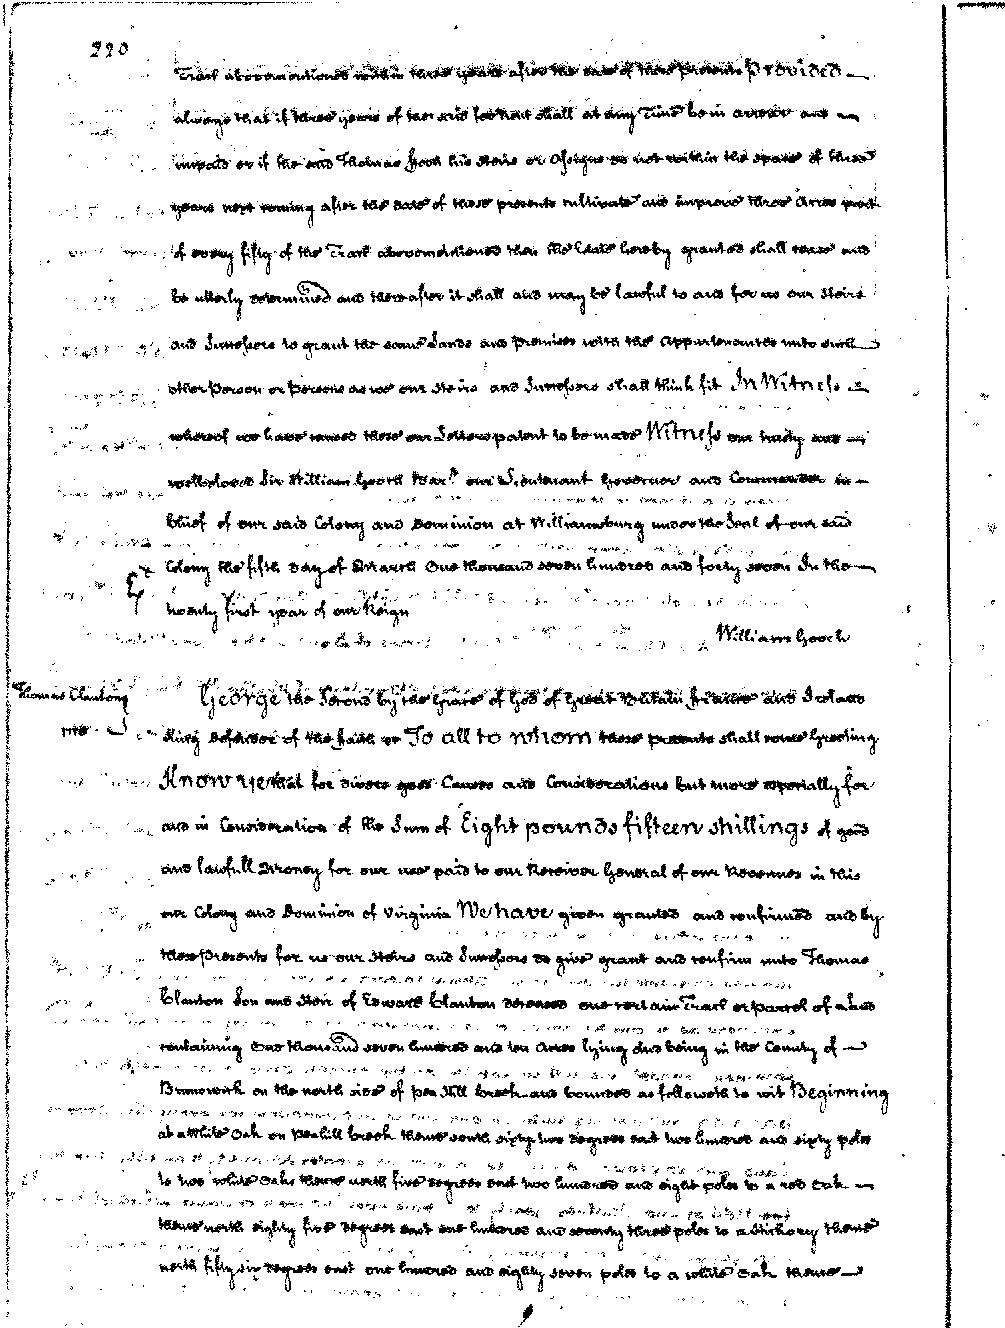 220
Tract abovementioned within three years after the date of these presents Provided
always that if three years of the said fee Rent shall at any Time be in arrear and
unpaid or if the said Thomas his Heirs or Assigns do not within the space of three
years next coming after the date of these presents cultivate and improve three Acres part
of every fifty of the Tract abovementioned then the Estate hereby granted shall cease and
be utterly determined and thereafter it shall and may be lawful to and for us our Heirs
and Successors to grant the same Lands and premises with the Appurtenances unto such
other Person or Persons as we our Heirs and Successors shall think fit In Witness
whereof we have caused these our Letters patent to be made Witness our trusty and
welbeloved Sir William Gooch Bart. our Lieutenant Governor and Commander in
Chief of our said Colony and Dominion at Williamsburg under the Seal of our said
Colony the fifth day of March One thousand seven hundred and forty seven In the
twenty first year of our Reign
William Gooch
Thomas Clanton
George the Second by the Grace of God of Great Britain France and Ireland
King Defender of the Faith &c To all to whom these presents shall come Greeting
Know ye that for divers good Causes and Considerations but more especially for
and in Consideration of the Sum of Eight pounds fifteen shillings of good
and lawfull Money for our use paid to our Receiver General of our Revenues in this
our Colony and Dominion of Virginia We have given granted and confirmed and by
these Presents for us our Heirs and Successors do give grant and confirm unto Thomas
Clanton Son and Heir of Edward Clanton deceased one certain Tract or parcel of Land
containing One thousand seven hundred and ten Acres lying and being in the County of
Brunswick on the north side of Pea Hill Creek and bounded as followeth to wit Beginning
at a White Oak on Peahill Creek thence south sixty two degrees east two hundred and sixty poles
to two white Oaks thence north five degrees east two hundred and eight poles to a red Oak
thence north eighty five degrees east one hundred and seventy three poles to a Hickory thence
north fifty six degrees east one hundred and eighty seven poles to a white Oak thence